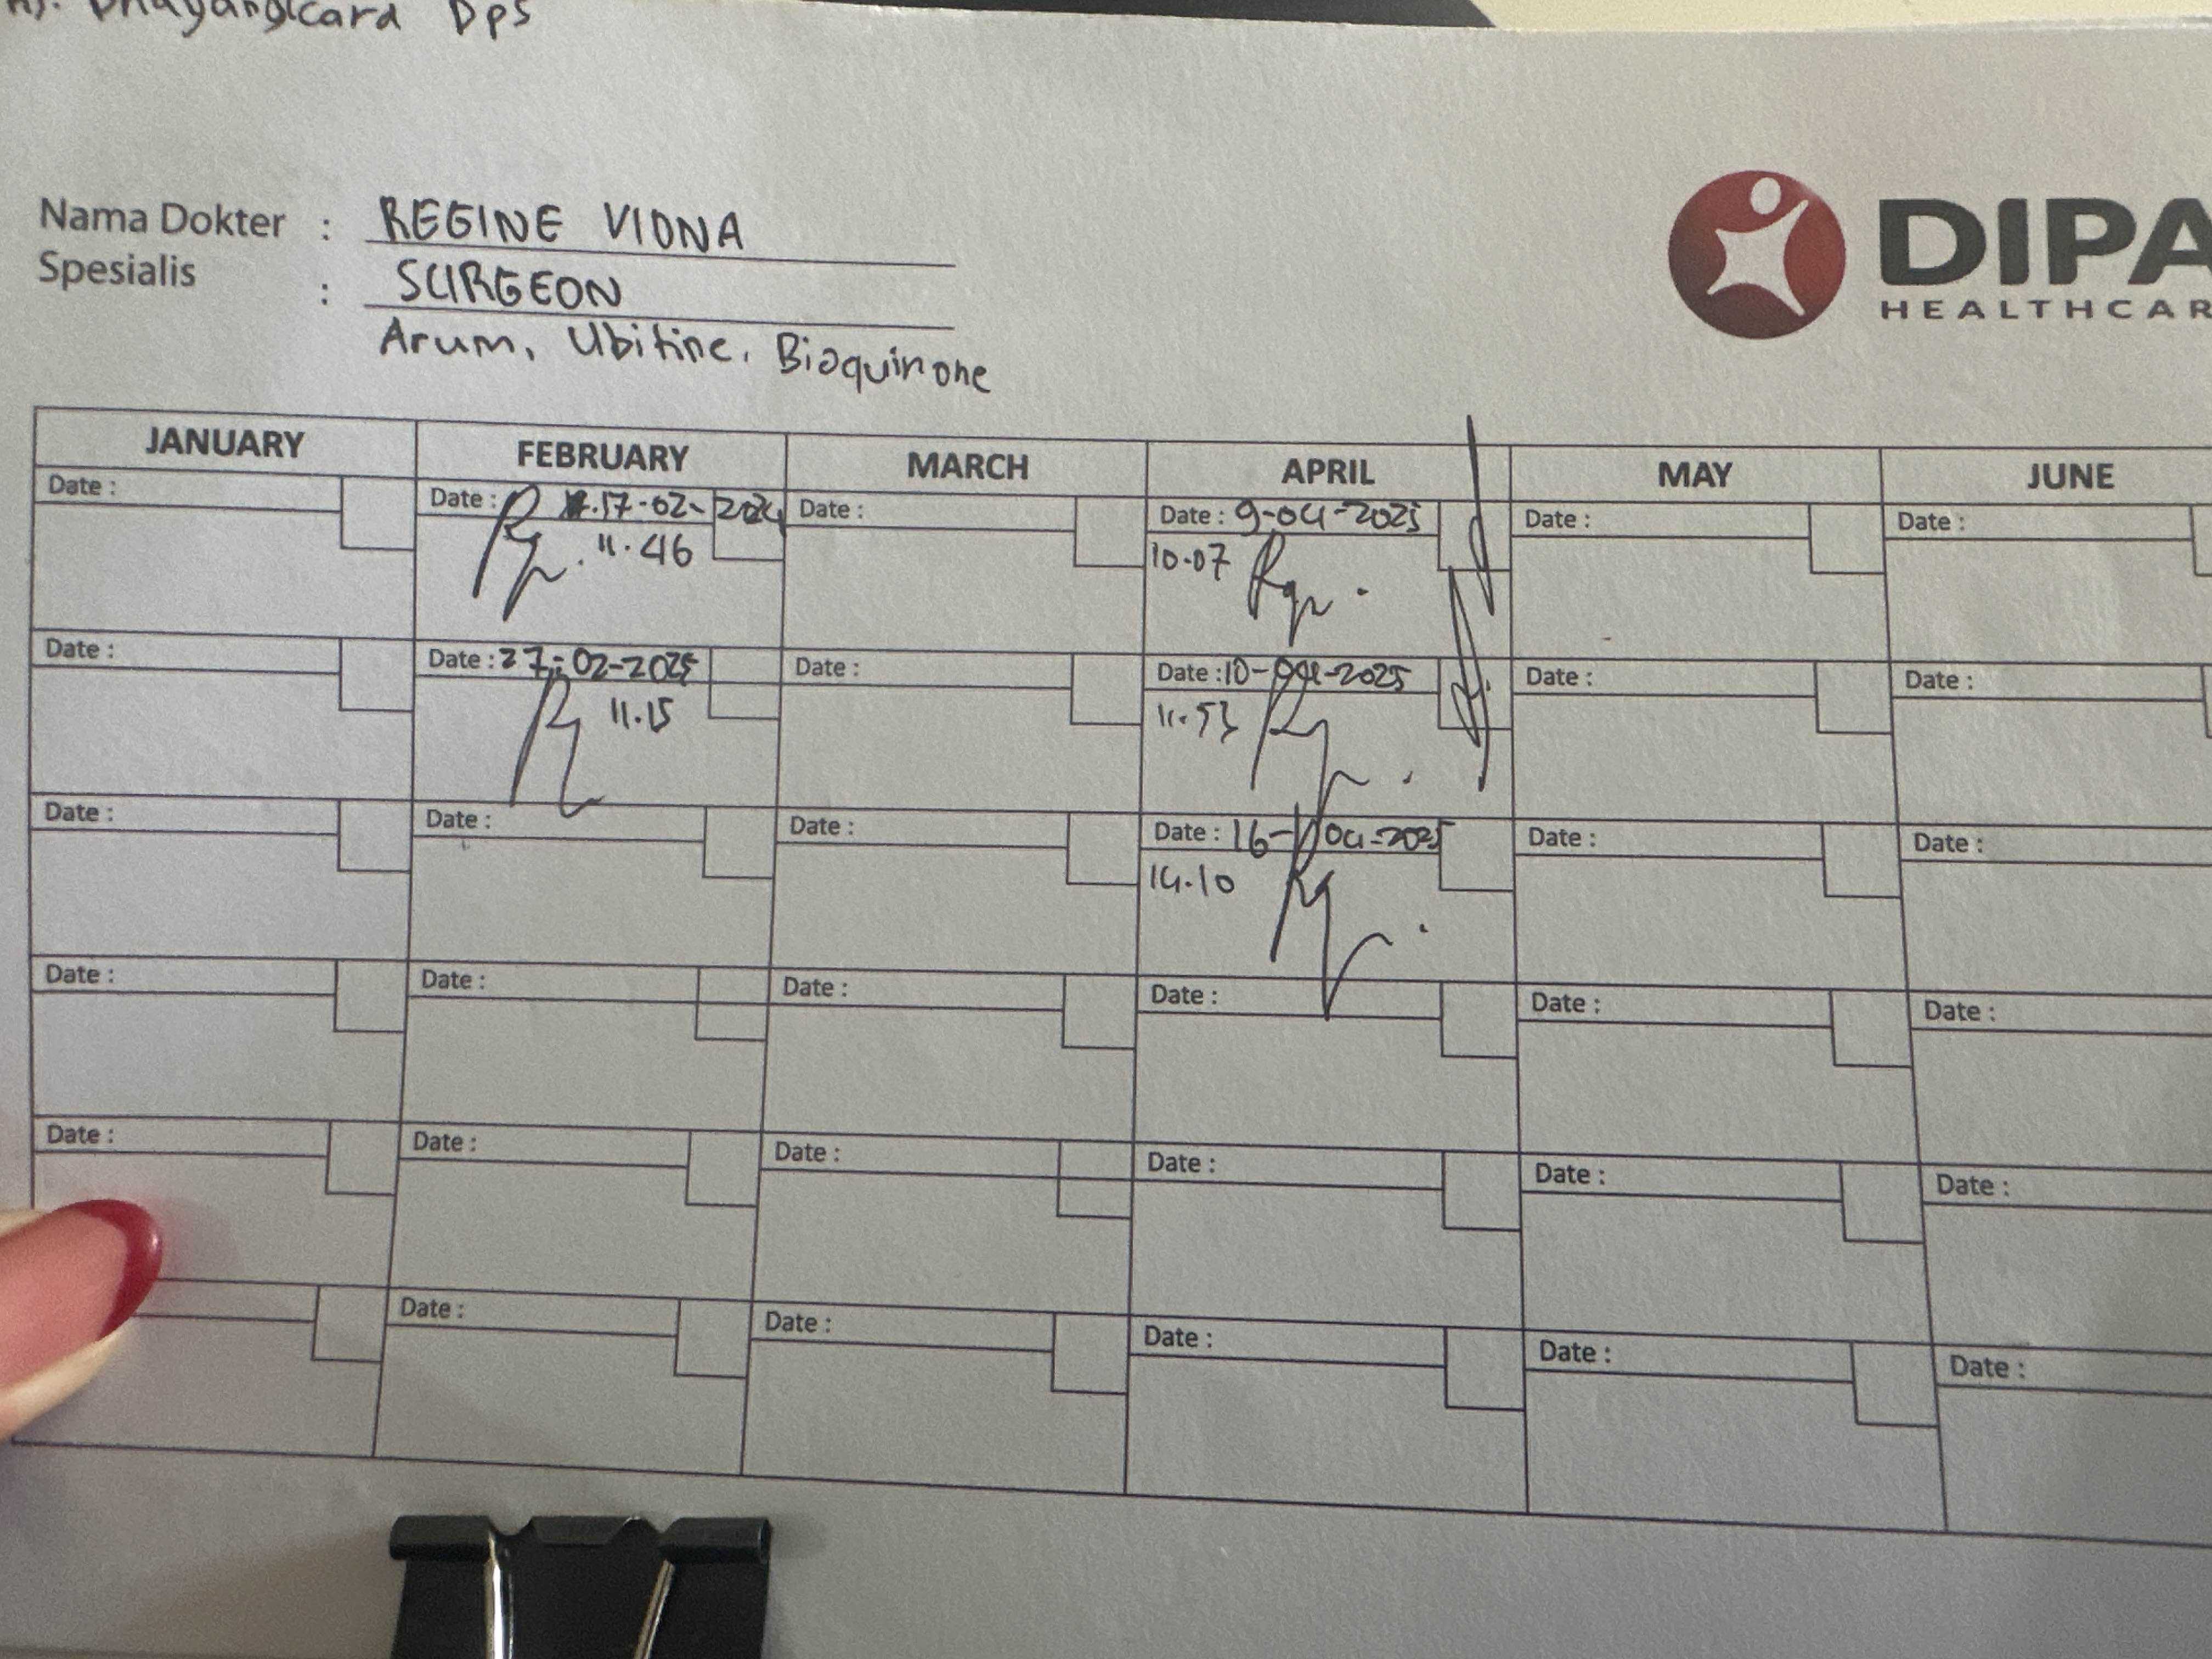 Dps
DIPA
HEALTHCAR
Nama Dokter : REGINE VIONA
Spesialis : SURGEON
Arum, Ubitine, Bioquinone
JANUARY FEBRUARY MARCH APRIL MAY JUNE
Date : Date : 17-02-202 Date : Date : 9-04-2025 Date : Date :
11.46 10.07
Date : Date : 27-02-2025 Date : Date : 10-04-2025 Date : Date :
11.15 11.53
Date : Date : Date : Date : 16-04-2025 Date : Date :
14.10
Date : Date : Date : Date : Date : Date :
Date : Date : Date : Date : Date : Date :
Date : Date : Date : Date : Date :